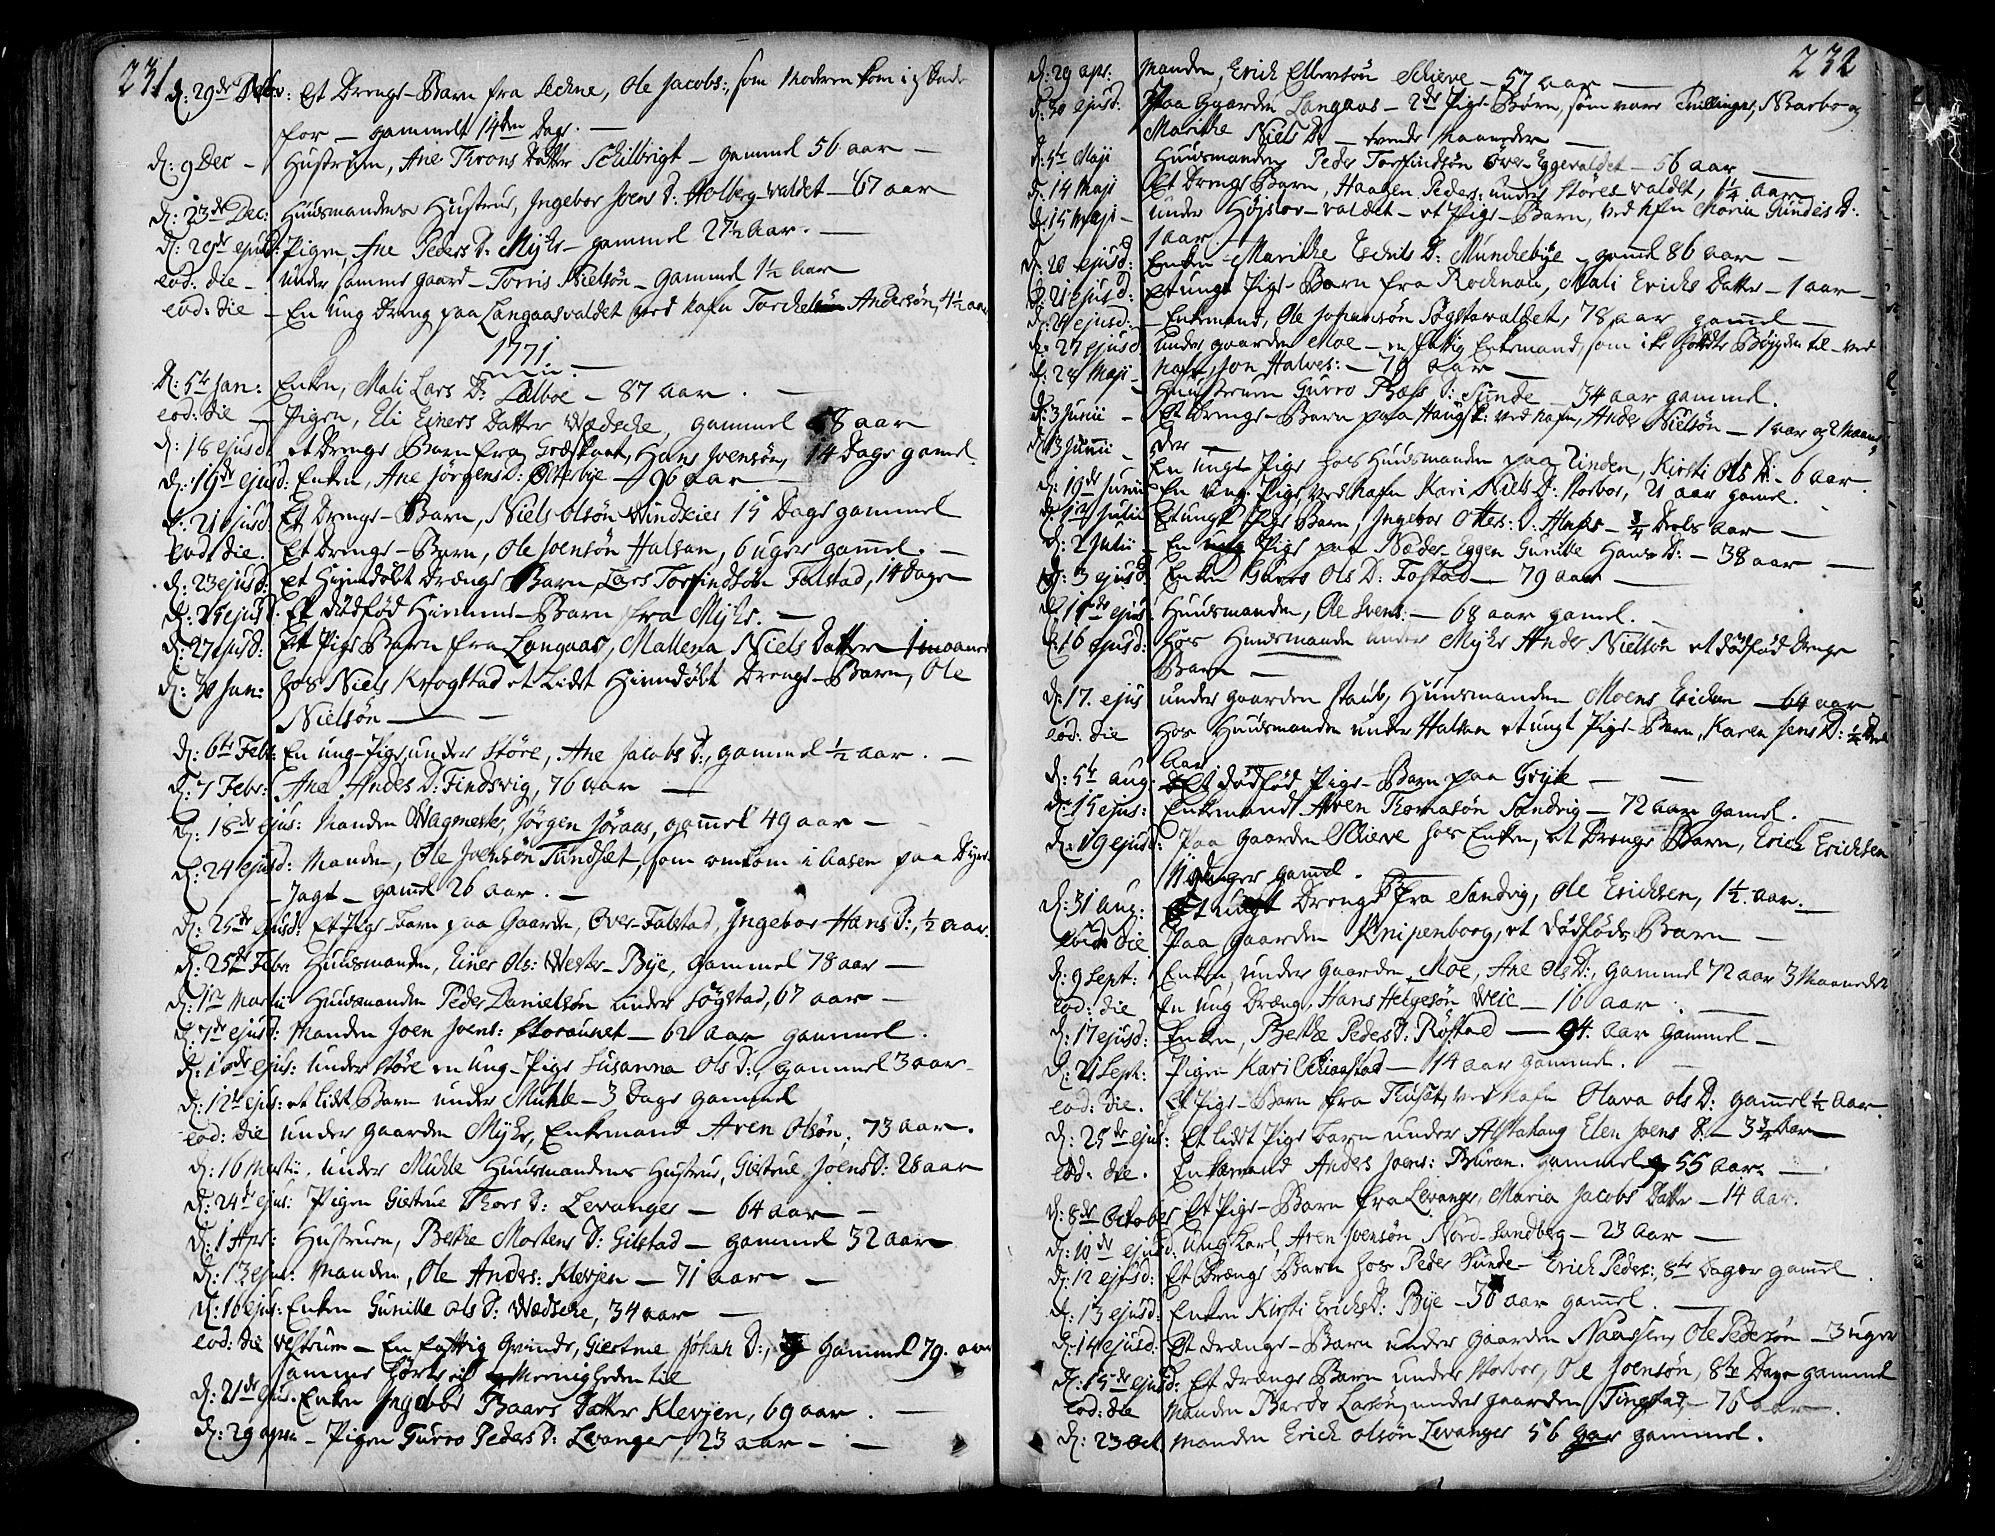 231
d: 29de Nov: Et Drenge-Barn fra Leckne, Ole Jacobs:, som Moderen kom i skade
for - gammelt 14den Dage. -
d: 9 Dec - Hustruen, Ane Throns Datter Schilbrigt - gammel 56 aar -
d: 23de Dec: Huusmandens Hustrue, Ingebor Joens D: Holberg-valdet - 67 aar
d: 29de ejusd: Pigen, Ane Peders D: Mÿhr - gammel 27½ Aar. -
eod: die - under samme gaard - Torris Nielsøn - gammel 1½ Aar
eod: die - En ung Dreng paa Langaasvaldet ved Nafn Torchel Andersøn, 4½ aar
1771.
d: 5te Jan: Enken, Mali Lars D: Aalboe - 87 aar. -
eod: die - Pigen, Eli Einers Datter Wædecke, gammel 58 aar
d: 18 ejusd: et Drenge Barn fra Godskaat, Hans Joensøn, 14 Dage gamel.
d: 19de ejusd: Enken, Ane Jørgens D: Østerbÿe - 96 aar -
d: 21 ejusd: Et Drenge-Barn, Niels Olsøn Windseier 15 Dage gammel
eod: die. Et Drenge-Barn, Ole Joensøn Halsan, 6 uger gammel. -
d: 23 ejusd: et Hiemdøbt Drænge Barn Lars Torfindsøn Falstad, 14 Dage
d: 25 ejusd: Et dødfød Hiemme-Barn fra Mÿhr. -
d: 27 ejusd: Et Pige Barn fra Langaas, Mallena Niels Datter 1 maaned
d: 30 Jan: hos Niels Krogstad et Lidet Hiemdøbt Drenge-Barn, Ole
Nielsøn -
d: 6te Febr: En ung-Pige, under Støre, Ane Jacobs D:, gammel ½ aar. -
d: 7 Febr: Ane Andes D: Findsvig, 76 aar -
d: 18de ejus: Manden Wagmester, Jørgen Joraas, gammel 49 aar -
d: 24 ejusd: Manden, Ole Joensøn Sundset, som omkom i Aasen paa Dÿre
Jagt - gammel 26 aar. -
d: 25de ejusd: Et Pige-Barn paa Gaarden, Over-Falstad, Ingebor Hans D:, ½ aar.
d: 25de Febr: Huusmanden, Einer Ols: Wester-Bÿe, gammel 78 aar -
d: 1te Martii Huusmanden Peder Danielsøn under Søgstad, 67 aar -
d: 7de ejusd: Manden Joen Joens: Storaunet - 62 aar gammel.
d: 10de ejus: under Støre en ung-Pige Susanna Ols D:, gammel 3 aar -
d: 12te ejus: et lidet Barn under Muhle - 3 Dage gammel
eod: die under Gaarden Mÿhr, Enkemand Aren Olsøn, 73 aar.
d: 16 Martii. under Muhle Huusmandens Hustrue, Giertrue Joens D: 28 aar
d: 24de ejus: Pigen Giertrue Thors D: Levanger - 64 aar -
d: 1 Apr: Hustruen, Berthe Mortens D: Gilstad - gammel 32 aar
d: 13 ejus: Manden, Ole Anders: Klevjen - 71 aar -
d: 16 ejus: Enken Gunille Ols D: Wædseke, 34 aar -
eod: die Vestrum - En fattig Qvinde, Giertrue Johan D:, Gammel 79. aar
samme hørte til Menigheden til
d: 21de ejus. Enken Ingebor Baars Datter Klevjen, 69 aar. -
d: 29 april - Pigen Gurro Peders D: Levanger, 23 aar - -
232
d: 29 apr: Manden, Erich Ellevsøn Schieve - 57 aar -
d: 30 ejusd: Paa Gaarden Langaas - 2de Pige-Børn, som vare Tvillinger, Barbo og
Marithe Niels D: - trende Maaneder -
d: 5te Maji Huusmanden Peder Torfindsøn Over-Eggevaldet - 56 aar -
d: 14 Maji Et Drenge Barn, Haagen Peders: under Støres valdet, 1¼ aar
d: 15 Maji - under Højslov-valdet - et Pige-Barn, ved Nfn Maria Gundes D:
1 aar -
d: 20 ejusd: Enken - Marithe Eschils D: Munchebÿe - gamel 86 aar -
d: 21 ejusd: Et ungt Pige-Barn fra Rochnan, Mali Erichs Datter - 1 aar -
d: 24 ejusd: - Enkemand, Ole Johansøn Søgstavaldet, 78 aar gamel -
d: 27 ejusd under gaarden Moe - en fattig Enkemand, som ike hørdte Bÿgden til - ved
nafn, Jon Halvers: - 70 aar -
d: 28 Maji - Huustruen Gurro Rafs D: Sunde - 34 aar gammel.
d: 3 Junii - Et Drenge-Barn paa Haugsk: ved Nafn, Ander Nielsøn - 1 aar og 2 Maane
der -
d: 13 Junii - En ungt Pige hos Huusmanden paa Linden, Kirsti Ols D: - 6 aar.
d: 19de Junii En ung Pige, ved Nafn Kari Niels D: Storbor, 21 aar gamel.
d: 1te Julii Et ungt Pige Barn, Ingebor Otters: D: Hafr - ¾ Deels aar -
d: 2 Julii - En Pige paa Neder-Eggen Gunille Hans D: - 38 aar -
d: 3 ejusd Enken Guro Ols D: Fostad - 79 aar -
d: 11de ejus: Huusmanden, Ole Svens: - 68 aar gamel. -
d: 16 ejusd: hos Huusmanden under Mÿhr Ander Nielsøn et dødfød Drenge
Barn -
d: 17. ejus under gaarden Staub, Huusmanden Moens Erichsen - 64 aar
eod: die hos Huusmanden under Halsan et ungt Pige-Barn, Karen Jens D: ½ Deel
Aar
d: 5te aug: Et dødfød Pige-Barn paa Gryte - -
d: 15 ejus: Enkemand Aren Thomasøn Sandvig - 72 aar gamel.
d: 19 ejusd: Paa Gaarden Schieve hos Enken, et Drenge Barn, Erich Erichsen
11 Dager gamel.
d: 31 Aug: Et ungt Drenge B: fra Sandvig, Ole Erichsen, 1½ aar. -
eod: die Paa gaarden Knipenborg, et dødføde Barn -
d: 9 Sept: Enken, under Gaarden Moe, Ane Ols D:, gammel 72 aar 3 Maaneder
eod: die En ung Dræng, Hans Helgesøn Weie - 16 aar. -
d: 17 ejusd: Enken, Berthe Peders D: Røstad - 94. aar gammel -
d: 21 Sept: Pigen Kari Schiaastad - 14 aar gammel. -
eod: die. Et Pige-Barn fra Thusæt, ved Nafn Olava Ols D: gammel ½ Aar.
d: 25de ejus: Et lidet Pige Barn under Alstahaug Elen Joens D: - 3¼ Aar
eod: die. Enkemand Anders Joens: Buran. gammel 55 aar. -
d: 8de October Et Pige-Barn fra Levanger, Maria Jacobs Datter - 14 Aar.
d: 10de ejusd: ung Karl, Aren Joensøn Nord-Sandberg - 23 aar -
d: 12 ejusd: Et Drænge Barn hos Peder Sunde - Erich Peders:, 8te Dager gammel.
d: 13 ejusd: Enken Kirsti Erichs D: Bÿe - 58 aar gamel. -
d: 14 ejusd: Et drænge-Barn under gaarden Naassen, Ole Pedersøn - 3 uger
d: 15de ejusd: Et drænge Barn under Storbor, Ole Joensøn, 8te Dage gammel
eod: die Manden Bardo Larsøn, under gaarden Tingstad, - 76 aar.
d: 23 Oct. Manden Erich Olsøn Levanger 56 aar gammel.